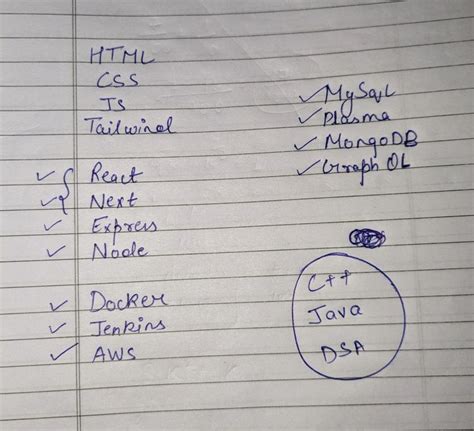 HTML
CSS
JS
Tailwind
React
Next
Express
Node
Docker
Jenkins
AWS
MySqL
Plasma
MongoDB
Graph QL
C++
Java
DSA